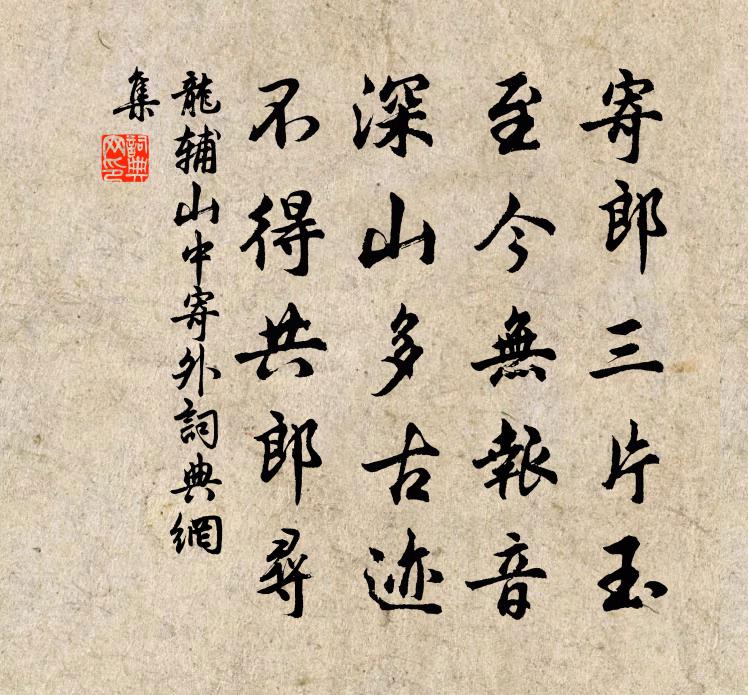 寄郎三片玉
至今無報音
深山多古迹
不得共郎尋
龍辅山中寄外詞典網
集
詞典
网印